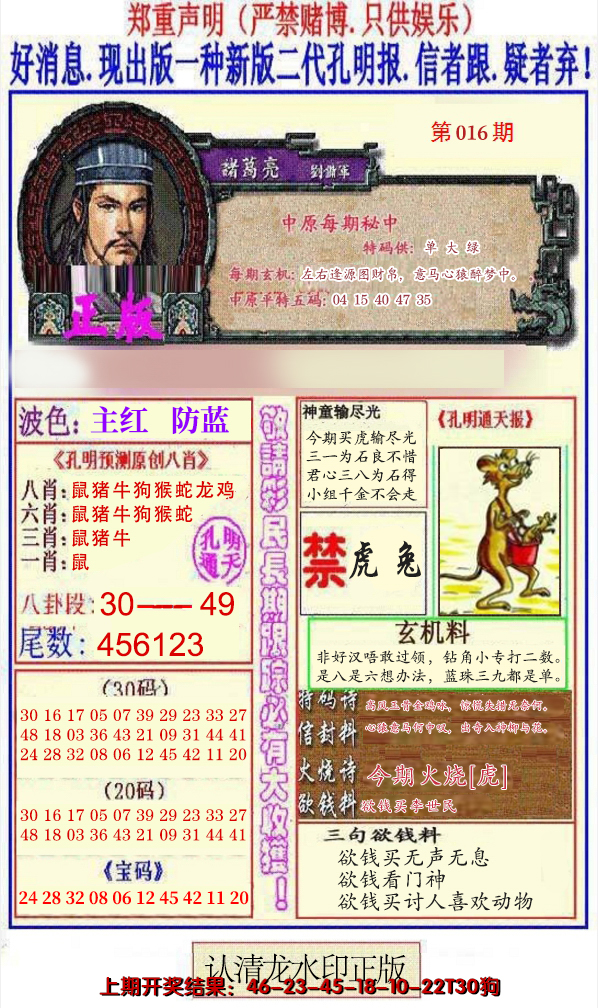 郑重声明（严禁赌博.只供娱乐）
好消息.现出版一种新版二代孔明报.信者跟.疑者弃！
第016期
諸葛亮 劉備軍
中原每期秘中
特码供：单 大 绿
每期玄机：左右逢源图财帛，意马心猿醉梦中。
中原平特五码：04 15 40 47 35
正版
波色：主红 防蓝
《孔明预测原创八肖》
八肖：鼠猪牛狗猴蛇龙鸡
六肖：鼠猪牛狗猴蛇
三肖：鼠猪牛
一肖：鼠
孔明
通天
八卦段：30——49
尾数：456123
（30码）
30 16 17 05 07 39 29 23 33 27
48 18 03 36 43 21 09 31 44 41
24 28 32 08 06 12 45 42 11 20
（20码）
30 16 17 05 07 39 29 23 33 27
48 18 03 36 43 21 09 31 44 41
《宝码》
24 28 32 08 06 12 45 42 11 20
敬請彩民長期跟踪必有大收獲！
神童输尽光
今期买虎输尽光
三一为石良不惜
君心三八为石得
小组千金不会走
《孔明通天报》
禁 虎 兔
玄机料
非好汉唔敢过领，钻角小专打二数。
是八是六想办法，蓝珠三九都是单。
特码诗
信封料
心猿意马何中叹，出寺入神柳与花。
火烧诗 今期火烧[虎]
欲钱料 欲钱买李世民
三句欲钱料
欲钱买无声无息
欲钱看门神
欲钱买讨人喜欢动物
认清龙水印正版
上期开奖结果：46-23-45-18-10-22T30狗